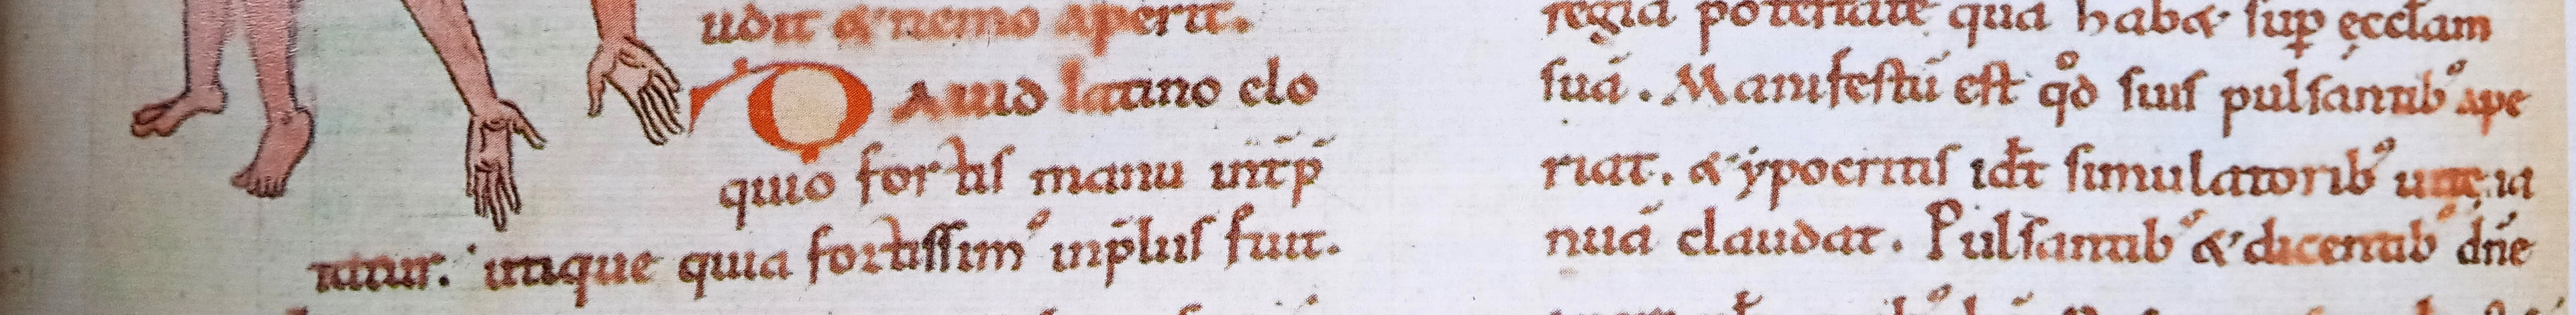 udit & nemo aperit.
DAuid latino elo
quio fortis manu int̄p̄
tatur. utique quia fortissimꝰ inp̄liis fuit.
regia potestate qua hab& sup̱ ęccl̄am
suā. Manifestū est qͦd suis pulsantibꝰ ape
riat. & ypocritis id̄t simulatoribꝰ uitę ia
nuā claudat. Pulsantibꝰ & dicentibꝰ dn̄e